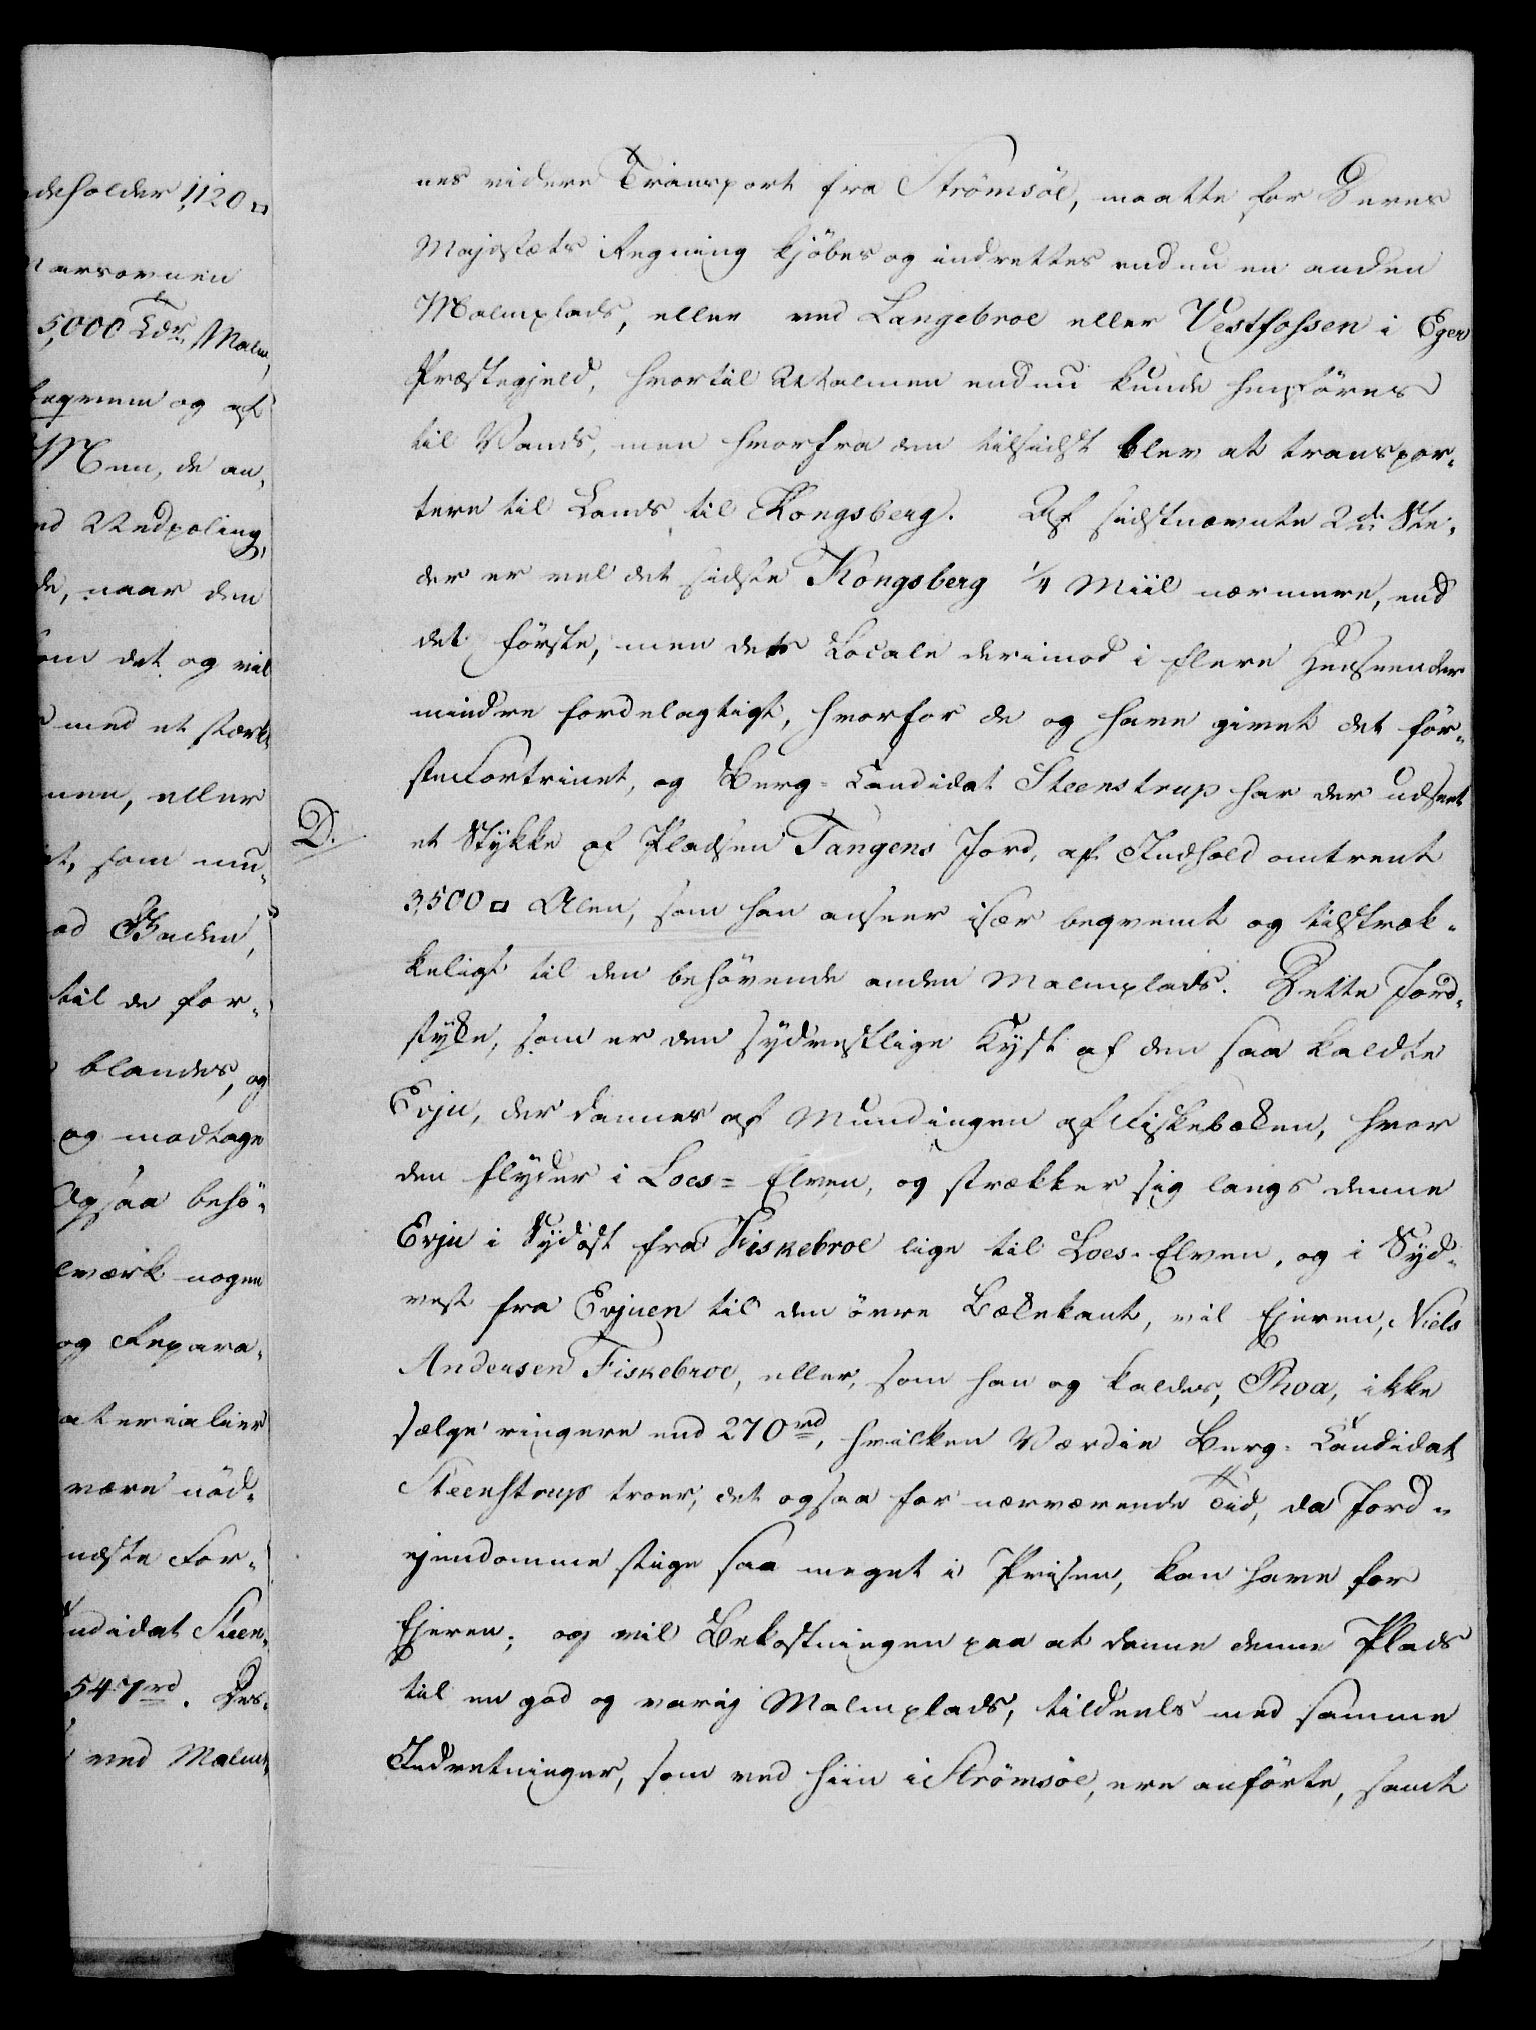 deholder 1,120 □
5,000 Tdr Malm,
beqvem og af
Men, de an,
de, naar den
om det og vil
med et stærk
nen, eller
som nu,
til de for-
blandes, og
og modtage
Ogsaa behö-
værk nogen
og Repara-
aterialier
være nöd-
næste For-
ndidat Steen-
547 rd. Des-
ved Malm,
nes videre Transport fra Strömsöe, maatte for Deres
Majestæts Regning kjöbes og indrettes endnu en anden
Malmplads, eller ved Langebroe eller Vestfossen i Eger
Præstegjeld, hvortil Malmen endnu kunde henföres
til Vands, men hvorfra den tilsidst blev at transpor-
tere til Lands til Kongsberg. Af sidstnævnte 2de Ste-
der er vel det sidste Kongsberg 1/4 Miil nærmere, end
det förste, men dets Locale derimod i flere Henseender
mindre fordelagtigt, hvorfor de og have givet det för-
ste Fortrinet, og Berg-Candidat Steenstrup har der udseet
D. et Stykke af Pladsen Tangens Jord, af Indhold omtrent
3,500 □ Alen, som han anseer især beqvemt og tilstræk-
keligt til den behövende anden Malmplads. Dette Jord-
stykke, som er den sydvestlige Kyst af den saa kaldte
Evju, der dannes af Mundingen af Fiskebækken, hvor
den flyder i Loes-Elven, og strækker sig langs denne
Evju i Sydost fra Fiskebroe lige til Loes-Elven, og i Syd-
vest fra Evjuen til den övre Bækkekant, vil Ejeren, Niels
Andersen Fiskebroe, eller, som han og kaldes, Moa, ikke
sælge ringere end 270 rd, hvilken Værdie Berg-Candidat
Steenstrup troer, det ogsaa for nærværende Tid, da Jord-
ejendomme stige saa meget i Prisen, kan have for
Ejeren; og vil Bekostningen paa at danne denne Plads
til en god og varig Malmplads, tildeels med samme
Indretninger, som ved hiin i Strömsöe, ere anförte, samt